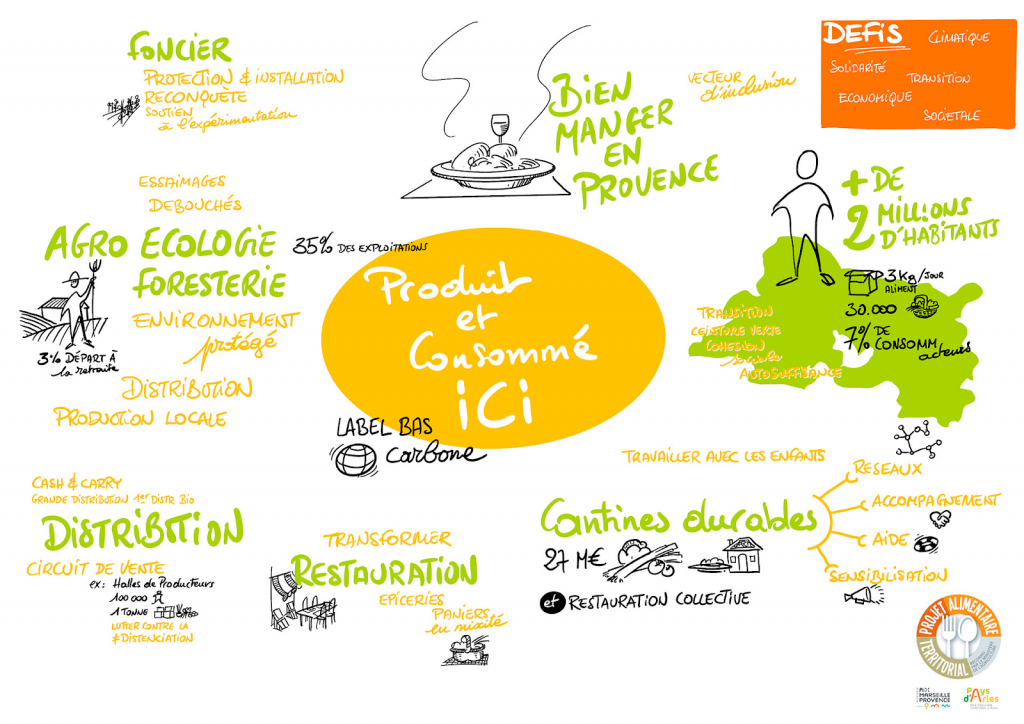 FONCIER
PROTECTION & INSTALLATION
RECONQUÊTE
SOUTIEN
à l'expérimentation
BIEN
MANGER
EN
PROVENCE
VECTEUR
d'inclusion
DEFIS
CLIMATIQUE
SOLIDARITÉ
TRANSITION
ECONOMIQUE
SOCIETALE
ESSAIMAGES
DEBOUCHÉS
AGRO ECOLOGIE
FORESTERIE
35% DES EXPLOITATIONS
ENVIRONNEMENT
protégé
3% DÉPART À
la retraite
DISTRIBUTION
PRODUCTION LOCALE
Produit
et
Consommé
iCi
LABEL BAS
carbone
+ DE
2 MILLIONS
D'HABITANTS
3 kg/JOUR
ALIMENT
30.000
7% DE
CONSOMM
acteurs
TRANSITION
CEINTURE VERTE
COHESION
sociale
AUTOSUFFISANCE
CASH & CARRY
GRANDE DISTRIBUTION 1er DISTR BIO
DISTRIBTION
CIRCUIT DE VENTE
ex: Halles de Producteurs
100 000
1 TONNE
LUTTER CONTRE LA
≠ DISTENCIATION
TRANSFORMER
RESTAURATION
EPICERIES
PANIERS
en mixité
TRAVAILLER AVEC LES ENFANTS
Cantines durables
27 M€
et RESTAURATION COLLECTIVE
RESEAUX
ACCOMPAGNEMENT
AIDE
SENSIBILISATION
PROJET ALIMENTAIRE
TERRITORIAL
AIX
MARSEILLE
PROVENCE
PAYS
d'Arles